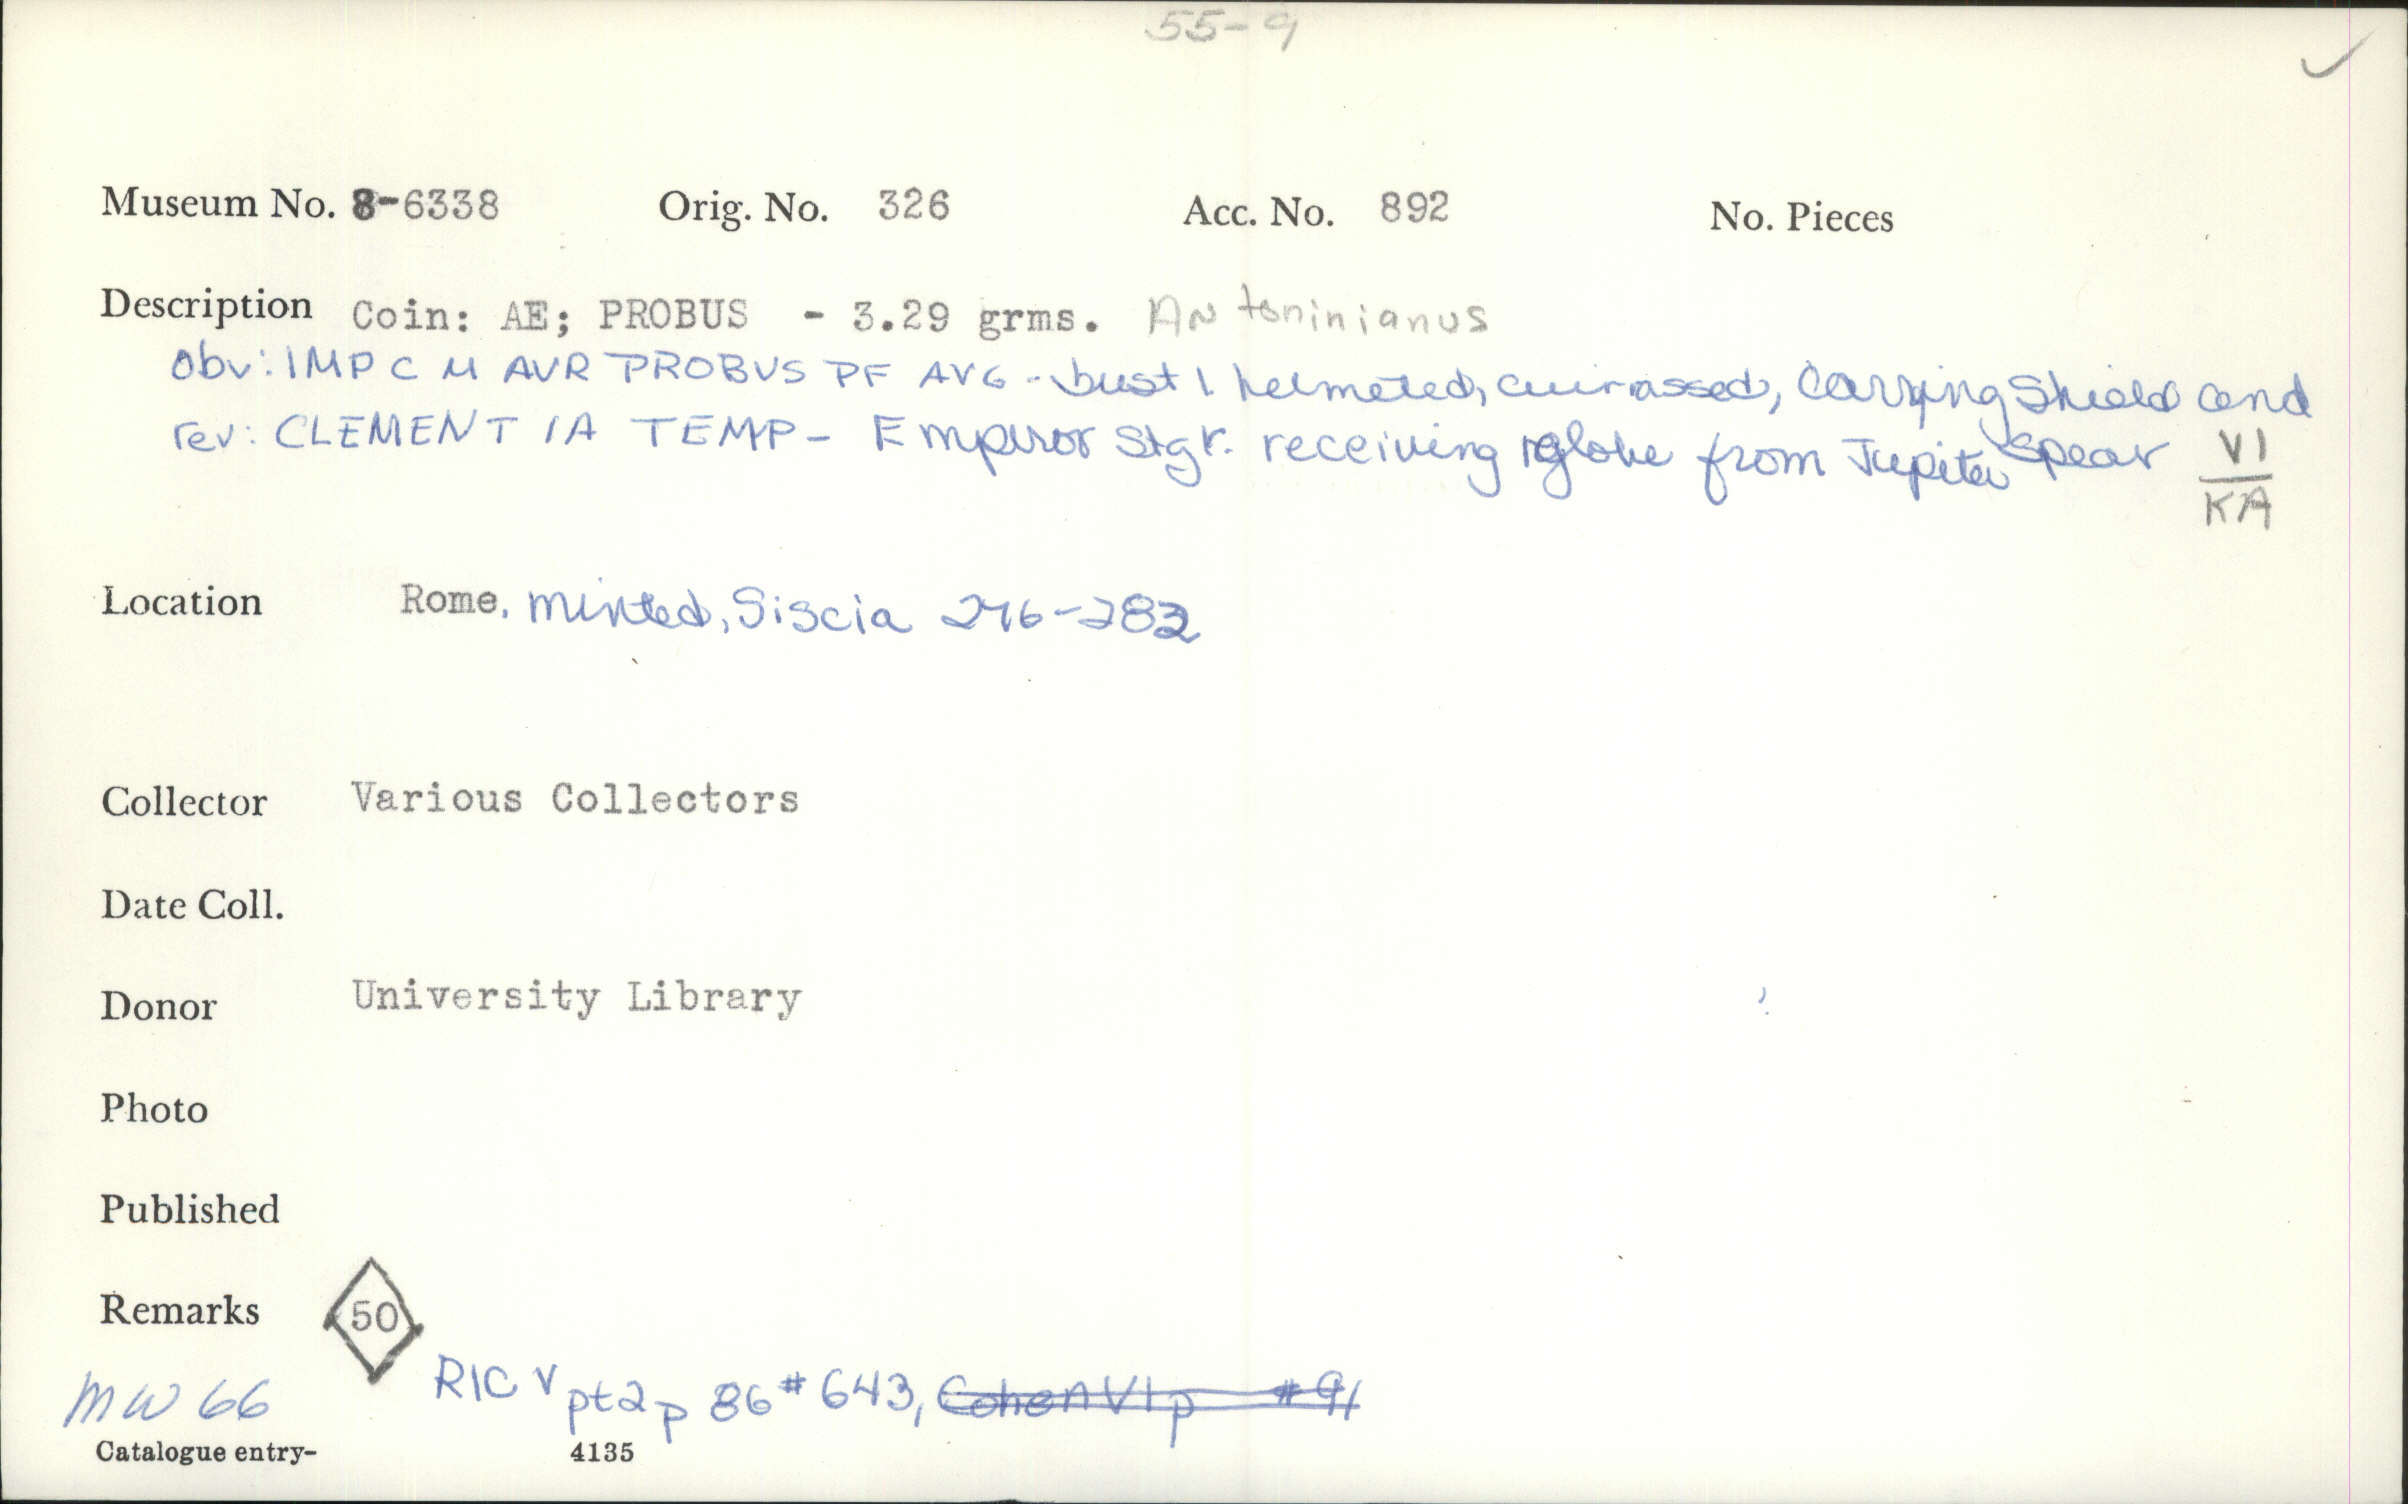 55-9
Museum No. 8-6338 Orig. No. 326 Acc. No. 892 No. Pieces
Description Coin: AE; PROBUS - 3.29 grms. ANtoninianus
Obv: IMP C M AVR PROBVS PF AVG - bust l helmeted, cuirassed, carrying Shield and
spear
rev: CLEMENT IA TEMP - Emperor Stg r. receiving globe from Jupiter
VI
KA
Location Rome, minted, Siscia 276-282
Collector Various Collectors
Date Coll.
Donor University Library
Photo
Published
Remarks 50
MW 66 RIC V pt2 p 86 # 643, Cohen VI p # 91
Catalogue entry- 4135